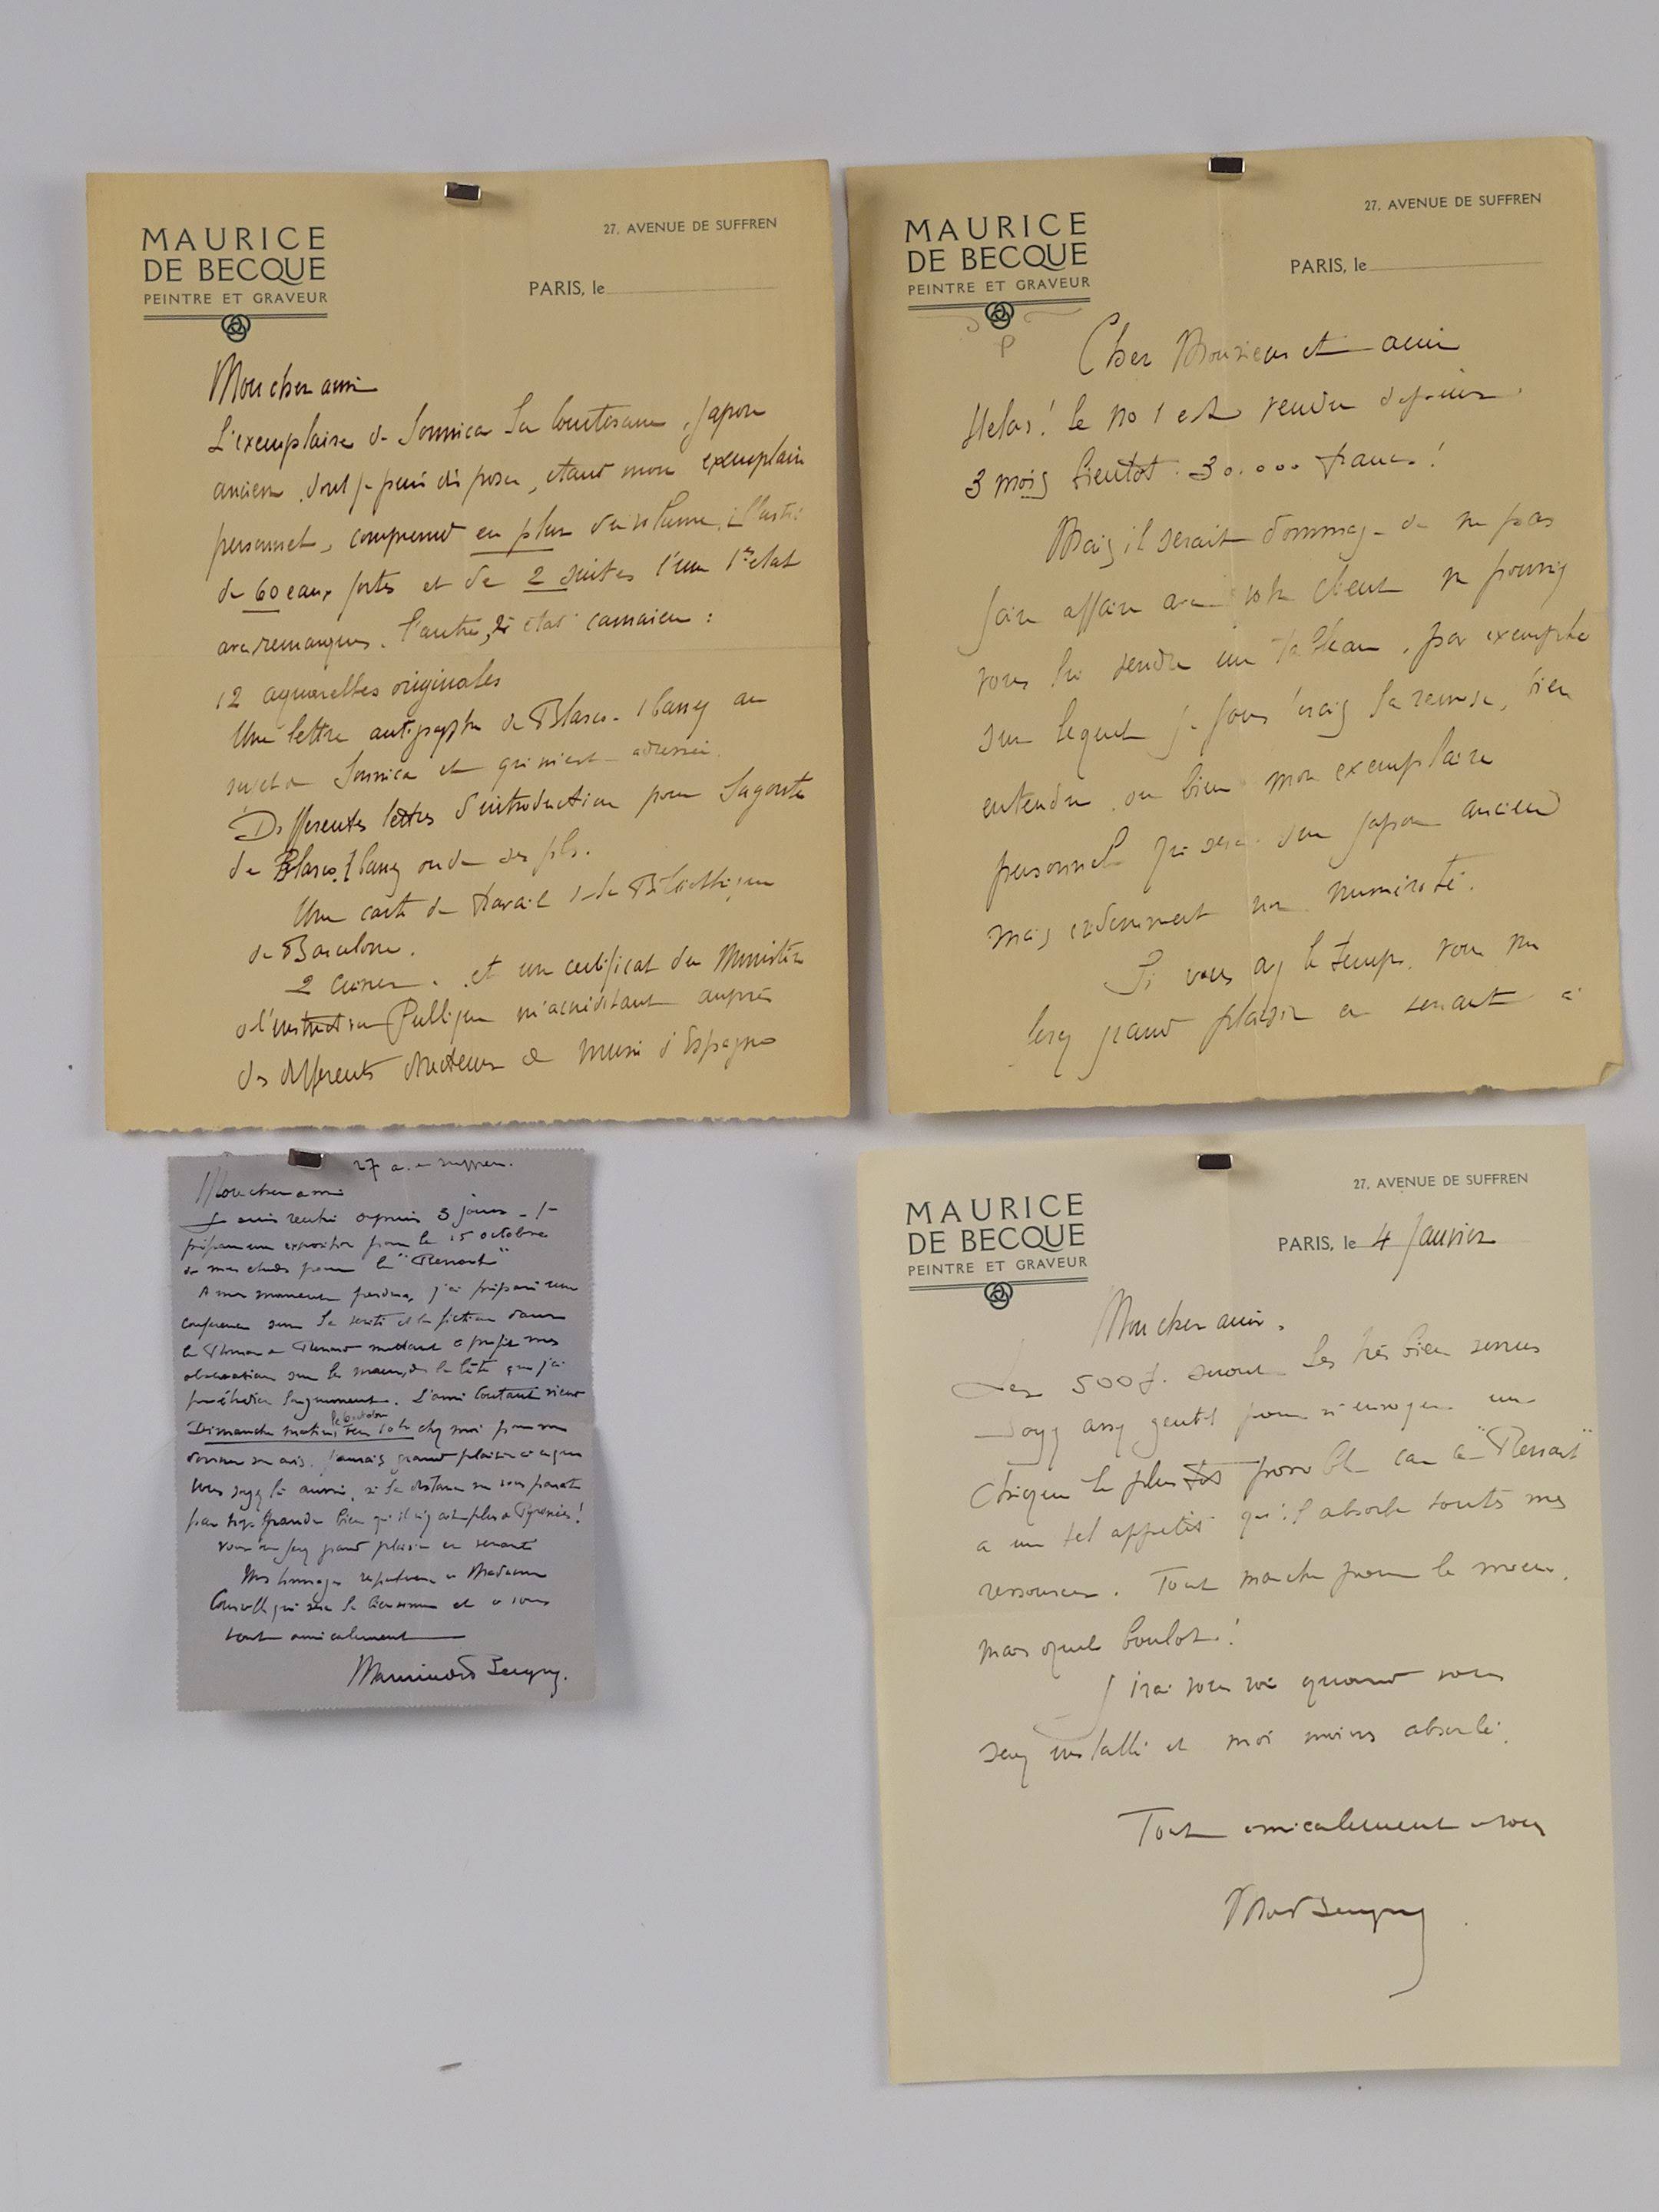 MAURICE
DE BECQUE
PEINTRE ET GRAVEUR
27, AVENUE DE SUFFREN
PARIS, le
Mon cher ami
L'exemplaire de Sonnica la Courtisane, Japon
ancien, dont je puis disposer, étant mon exemplaire
personnel, comprend en plus du volume illustré
de 60 eaux fortes et de 2 suites l'une 1er état
avec remarques, l'autre, 2e état camaieu :
12 aquarelles originales
Une lettre autographe de Blasco-Ibanez au
sujet de Sonnica et qui m'est adressée.
Differentes lettres d'introduction pour Sagonte
de Blasco Ibanez ou de ses fils.
Une carte de travail de la Bibliothèque
de Barcelone.
2 cuivres. et un certificat du Ministère
de l'instruction Publique m'accréditant auprès
des differents directeurs de musée d'Espagne
MAURICE
DE BECQUE
PEINTRE ET GRAVEUR
27, AVENUE DE SUFFREN
PARIS, le
Cher Monsieur et ami
Helas! le no 1 est vendu depuis
3 mois bientot : 30.000 francs!
Mais il serait dommage de ne pas
faire affaire avec votre client ne pourriez
vous lui vendre un tableau, par exemple
sur lequel je vous ferais la remise, bien
entendu, ou bien mon exemplaire
personnel qui sera sur Japon ancien
mais évidemment non numéroté.
Si vous avez le temps, vous me
ferez grand plaisir en venant à
27 av. de Suffren.
Mon cher ami
Je suis rentré depuis 3 jours. Je
prépare une exposition pour le 15 octobre
de mes etudes pour le "Renart"
A mes moments perdus, j'ai préparé une
conference sur la verité et la fiction dans
le Roman de Renart mettant à profit mes
observations sur les moeurs des bêtes que j'ai
pu étudier longuement. L'ami Coutant vient
Dimanche matin, vers 10 h chez moi pour me
donner son avis. J'aurais grand plaisir à ce que
vous soyez là aussi, si la distance ne vous parait
pas trop grande bien qu'il n'y ait plus de Pyrénées!
vous me ferez grand plaisir en venant
Mes hommages respectueux à Madame
qui sera la bienvenue et à vous
tout amicalement
Maurice de Becque.
MAURICE
DE BECQUE
PEINTRE ET GRAVEUR
27, AVENUE DE SUFFREN
PARIS, le 4 Janvier
Mon cher ami.
Les 500 f. seront les très bien venus
Soyez assez gentil pour m'envoyer un
chèque le plus tot possible car ce "Renart"
a un tel appetit qu'il absorbe toutes mes
ressources. Tout marche pour le mieux.
mais quel boulot!
J'irai vous voir quand vous
serez installé et moi moins absorbé.
Tout amicalement à vous
M de Becque